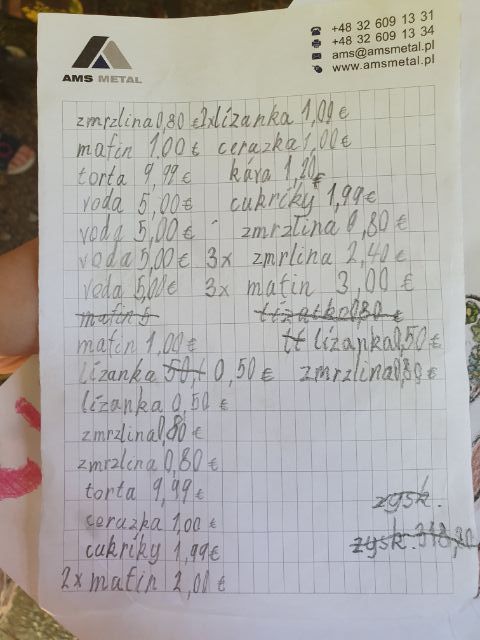 +48 32 609 13 31
+48 32 609 13 34
ams@amsmetal.pl
www.amsmetal.pl
AMS METAL
zmrzlina 0,80 € 2x lízanka 1,00 €
mafin 1,00 € cerazka 1,00 €
torta 9,99 € káva 1,20 €
voda 5,00 € cukríky 1,99 €
voda 5,00 € zmrzlina 0,80 €
voda 5,00 € 3x zmrlina 2,40 €
voda 5,00 € 3x mafin 3,00 €
mafin 5 lízatko 0,80 €
mafin 1,00 € lízanka 0,50 €
lízanka 50,1 0,50 € zmrzlina 0,80 €
lízanka 0,50 €
zmrzlina 0,80 €
zmrzlina 0,80 €
torta 9,99 € zysk.
cerazka 1,00 €
zysk. 318,20
cukríky 1,99 €
2x mafin 2,00 €